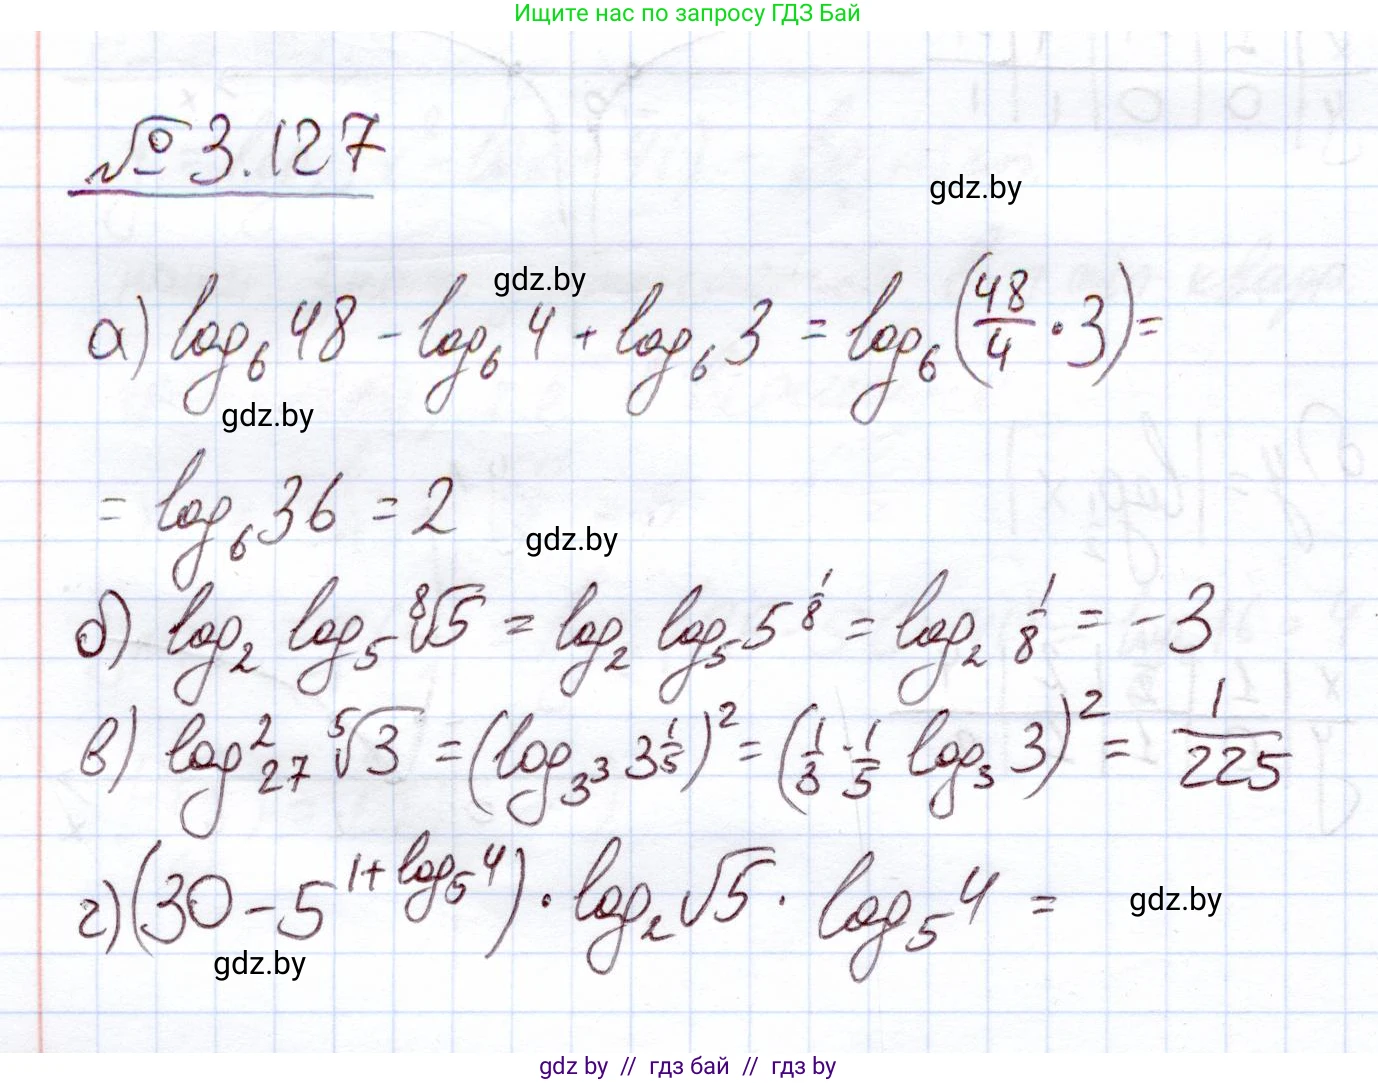 Ищите нас по запросу ГДЗ Бай
№ 3.127
gdz.by
gdz.by
а) log₆ 48 - log₆ 4 + log₆ 3 = log₆ (48/4 · 3) =
gdz.by
= log₆ 36 = 2
gdz.by
б) log₂ log₅ ⁸√5 = log₂ log₅ 5^(1/8) = log₂ 1/8 = -3
в) log²₂₇ ⁵√3 = (log_(3³) 3^(1/5))² = (1/3 · 1/5 log₃ 3)² = 1/225
г) (30 - 5^(1+log₅ 4)) · log₂ √5 · log₅ 4 =
gdz.by
gdz.by
gdz by // гдз бай // гдз by